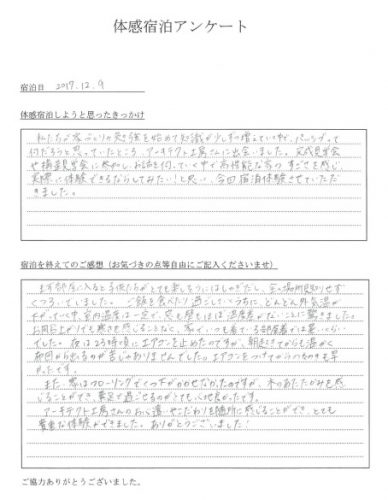 体感宿泊アンケート
宿泊日 2017.12.9
体感宿泊しようと思ったきっかけ
私たちが家づくりの勉強を始めて知識が少しずつ増えていく中で、パッシブって
何だろうと思っていたところ、アーキテクト工房さんに出会いました。完成見学会
や構造見学会に参加し、お話を伺っていく中で高性能な家のすごさを感じ、
実際に体験できるならしてみたい！と思い、今回宿泊体験させていただ
きました。
宿泊を終えてのご感想（お気づきの点等自由にご記入くださいませ）
まず部屋に入ると子供たちがとても楽しそうにはしゃぎだし、
くつろいでいました。ご飯を食べたり過ごしていくうちに、どんどん外気温が
下がっていく中、室内温度は一定で、床も壁もほぼ温度差がないことに驚きました。
お風呂上がりでも寒さを感じることもなく、家でいつも着ている部屋着では暑いくらい
でした。夜は23時頃にエアコンを止めたのですが、朝起きてからも温かく
布団から出るのが苦じゃありませんでした。エアコンをつけてからつくのも早
かったです。
また、家はフローリングでくつ下がかかせなかったのですが、木のあたたかみを感
じることができ、素足で過ごせるのがとても心地良かったです。
アーキテクト工房さんの心遣いやこだわりを随所に感じることができ、とても
貴重な体験ができました。ありがとうございました！
ご協力ありがとうございました。